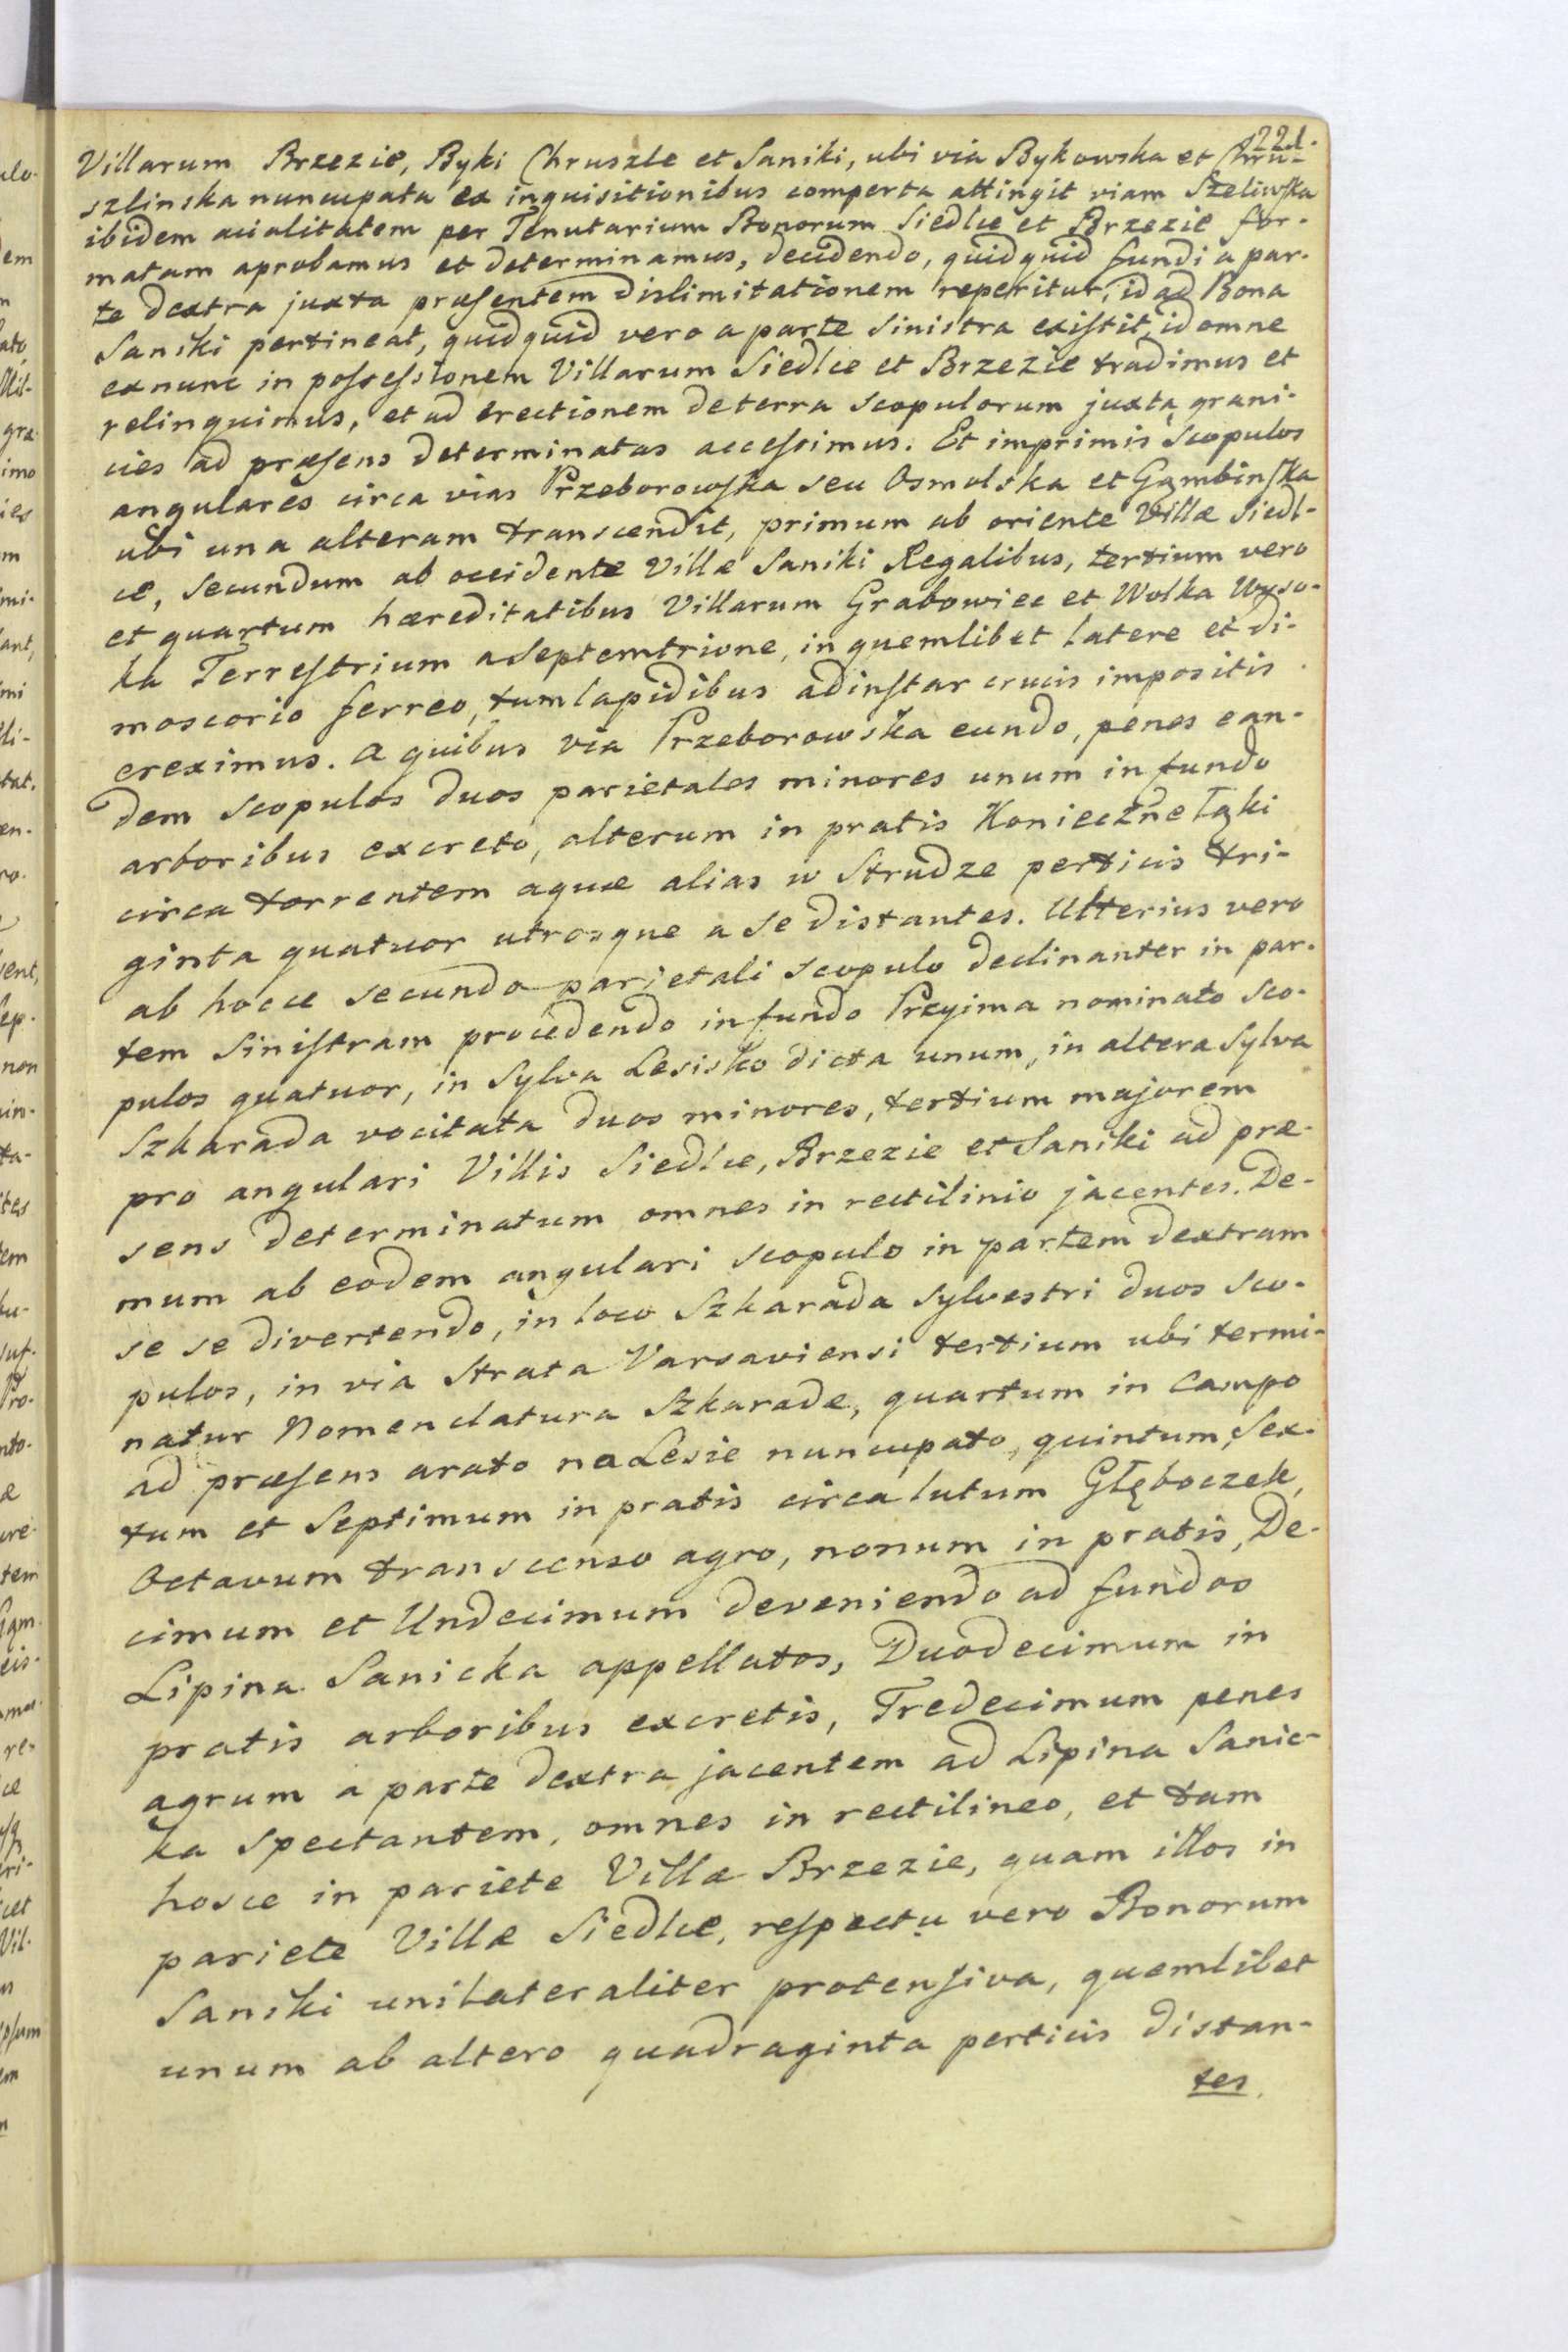 221.
Villarum Brzezie, Byki Chruszle et Saniki, ubi via Bykowska et Chru-
szlinska nuncupata ex inquisitionibus comperta attingit viam Szeliwska
ibidem acialitatem per Tenutarium Bonorum Siedlce et Brzezie for-
matam aprobamus et determinamus, decidendo, quidquid fundi a par-
te dextra juxta præsentem dislimitationem reperitur, id ad Bona
Saniki pertineat, quidquid vero a parte sinistra existit, id omne
ex nunc in possessionem Villarum Siedlce et Brzezie tradimus et
relinquimus, et ad erectionem de terra scopulorum juxta grani-
cies ad præsens determinatas accessimus. Et imprimis Scopulos
angulares circa vias Przeborowska seu Osmolska et Gąmbinska
ubi una alteram transcendit, primum ab oriente Villæ Siedl-
ce, secundum ab occidente Villæ Saniki Regalibus, tertium vero
et quartum hæreditatibus Villarum Grabowiec et Wolka Wyso-
ka Terrestrium a Septemtrione, in quemlibet latere et di-
moscorio ferreo, tum lapidibus adinstar crucis impositis
ereximus. A quibus via Przeborowska eundo, penes ean-
dem scopulos duos parietales minores unum in fundo
arboribus excreto, alterum in pratis Konieczne Łąki
circa torrentem aquæ alias w Strudze perticis tri-
ginta quatuor utrosque a se distantes. Ulterius vero
ab hocce secundo parietali scopulo declinanter in par-
tem sinistram procedendo in fundo Przyima nominato sco-
pulos quatuor, in Sylva Lesisko dicta unum, in altera Sylva
Szkarada vocitata duos minores, tertium majorem
pro angulari Villis Siedlce, Brzezie et Saniki ad præ-
sens determinatum omnes in rectilinio jacentes. De-
mum ab eodem angulari scopulo in partem dextram
se se divertendo, in loco Szkarada sylvestri duos sco-
pulos, in via strata Varsaviensi tertium ubi termi-
natur Nomenclatura Szkaradæ, quartum in campo
ad præsens arato na Lesie nuncupato, quintum, sex-
tum et Septimum in pratis circa lutum Głęboczek,
Octavum transcenso agro, nonum in pratis, De-
cimum et Undecimum deveniendo ad fundos
Lipina Sanicka appellatos, Duodecimum in
pratis arboribus excretis, Tredecimum penes
agrum a parte dextra jacentem ad Lipina Sanic-
ka spectantem, omnes in rectilineo, et tam
hosce in pariete Villæ Brzezie, quam illos in
pariete Villæ Siedlce, respectu vero Bonorum
Saniki unilateraliter protensiva, quemlibet
unum ab altero quadraginta perticis distan-
tes.